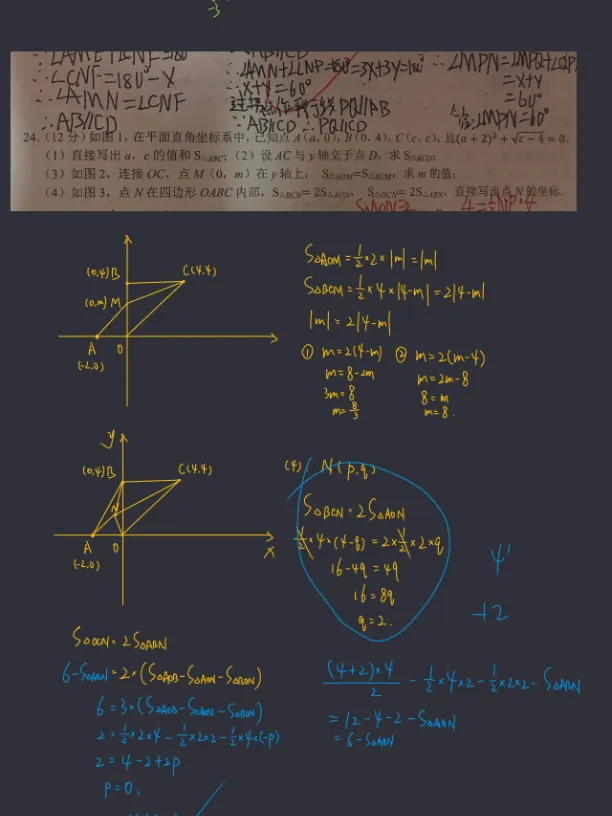 -3
∴∠CNF=180°-X
∴∠AMN=∠CNF
∴AB∥CD
∵∠AMN+∠CNP=180°=3X+3Y=180°
∴X+Y=60°
∵AB∥CD ∴PQ∥CD
∴∠MPN=∠MPQ+∠QPN
=X+Y
=60°
24.(12 分) 如图 1, 在平面直角坐标系中, 已知点 A (a, 0), B (0, 4), C (c, c), 且(a + 2)² + √c − 4 = 0.
(1) 直接写出 a, c 的值和 S△ABC; (2) 设 AC 与 y 轴交于点 D, 求 S△BCD;
(3) 如图 2, 连接 OC, 点 M (0, m) 在 y 轴上, S△AOM=S△BCM, 求 m 的值;
(4) 如图 3, 点 N 在四边形 OABC 内部, S△BCN= 2S△AON, S△OCN= 2S△ABN, 直接写出点 N 的坐标.
(0,4)B
C(4,4)
(0,m)M
A
O
(-2,0)
S△AOM=1/2×2×|m|=|m|
S△BCM=1/2×4×|4-m|=2|4-m|
|m|=2|4-m|
① m=2(4-m) ② m=2(m-4)
m=8-2m m=2m-8
3m=8 8=m
m=8/3 m=8.
y
(0,4)B
C(4,4)
N
A
O
x
(-2,0)
(4). N(p,q)
S△BCN=2S△AON
1/2×4×(4-q)=2×1/2×2×q
16-4q=4q
16=8q
q=2.
4'
+2
S△OCN=2S△ABN
6-S△ABN=2×(S△AOB-S△AON-S△BON)
6=3×(S△AOB-S△AON-S△BON)
2=1/2×2×4-1/2×2×2-1/2×4×(-p)
2=4-2+2p
p=0.
(4+2)×4/2-1/2×4×2-1/2×2×2-S△ABN
=12-4-2-S△ABN
=6-S△ABN